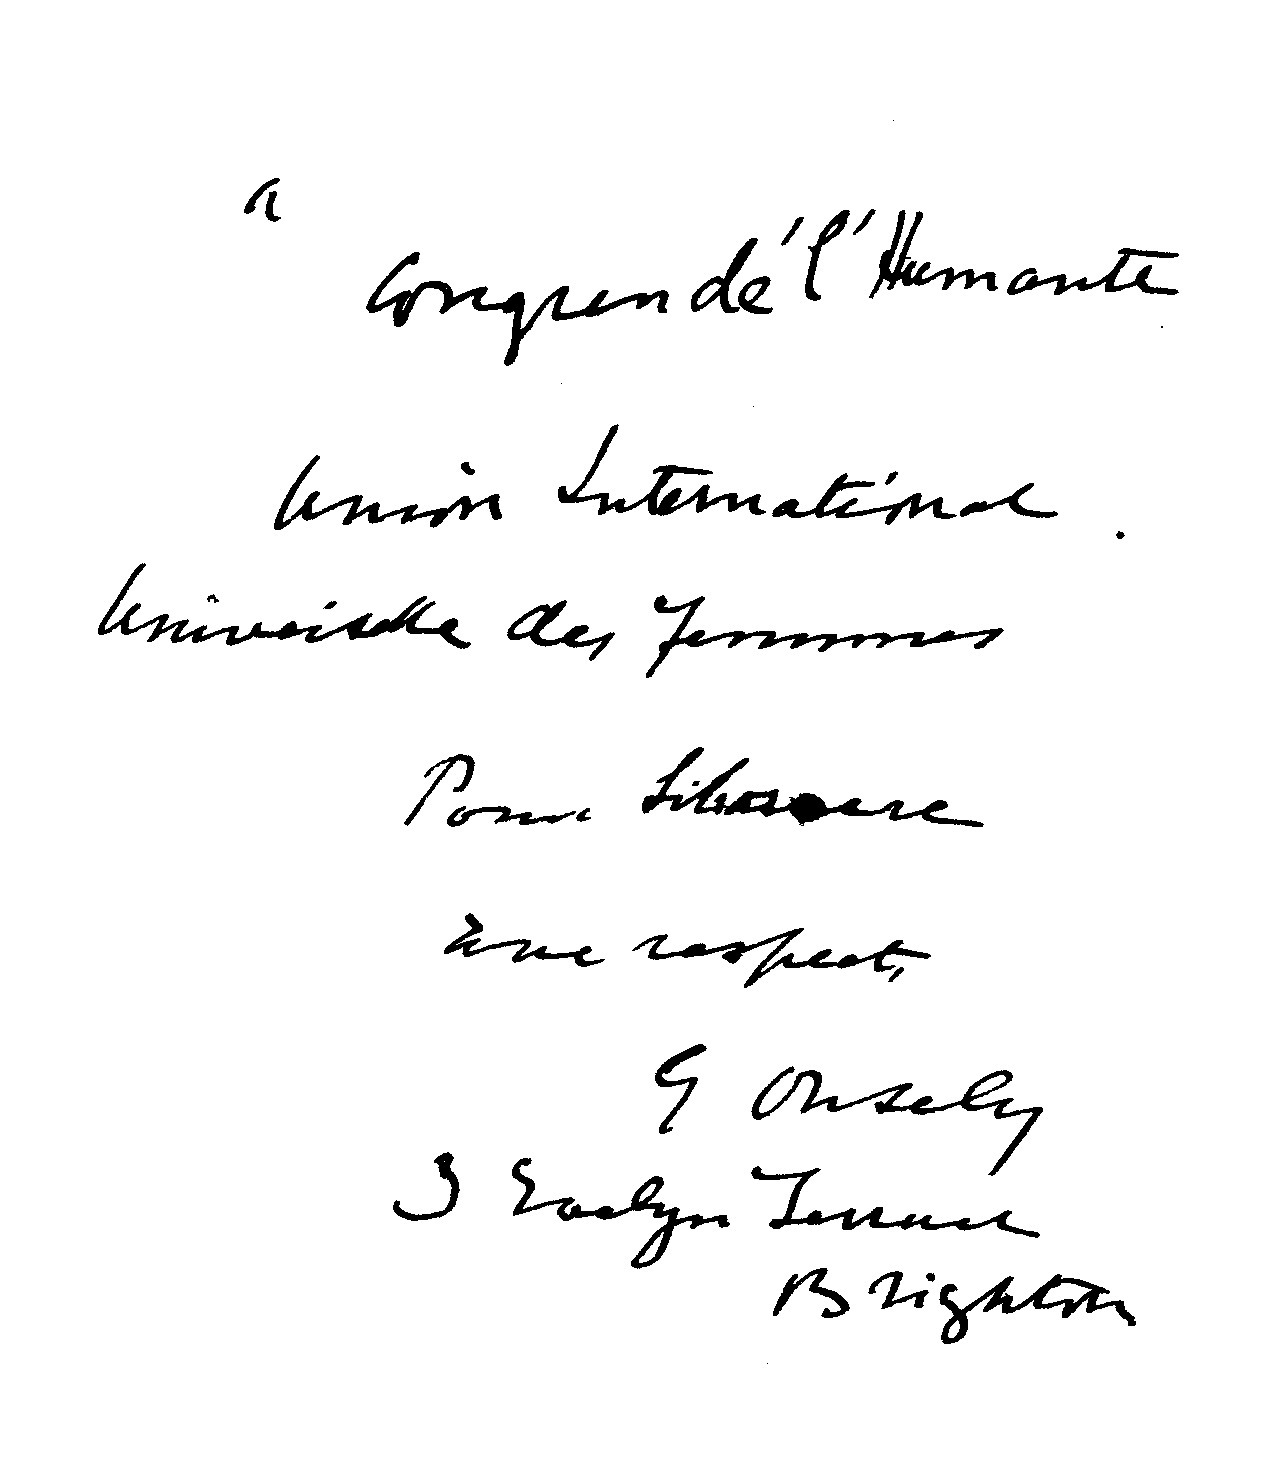 a
Congren dé l'Humanite
Union International
Universelle des Femmes
Pour
une respect,
G Ousely
3 Evelyn Terrace
Brighton